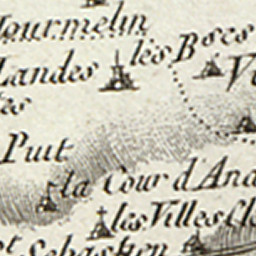 Tourmelin
Landes lès Bses
tes
Puit
la Cour d'And
les Villes Cl
st Sebastien